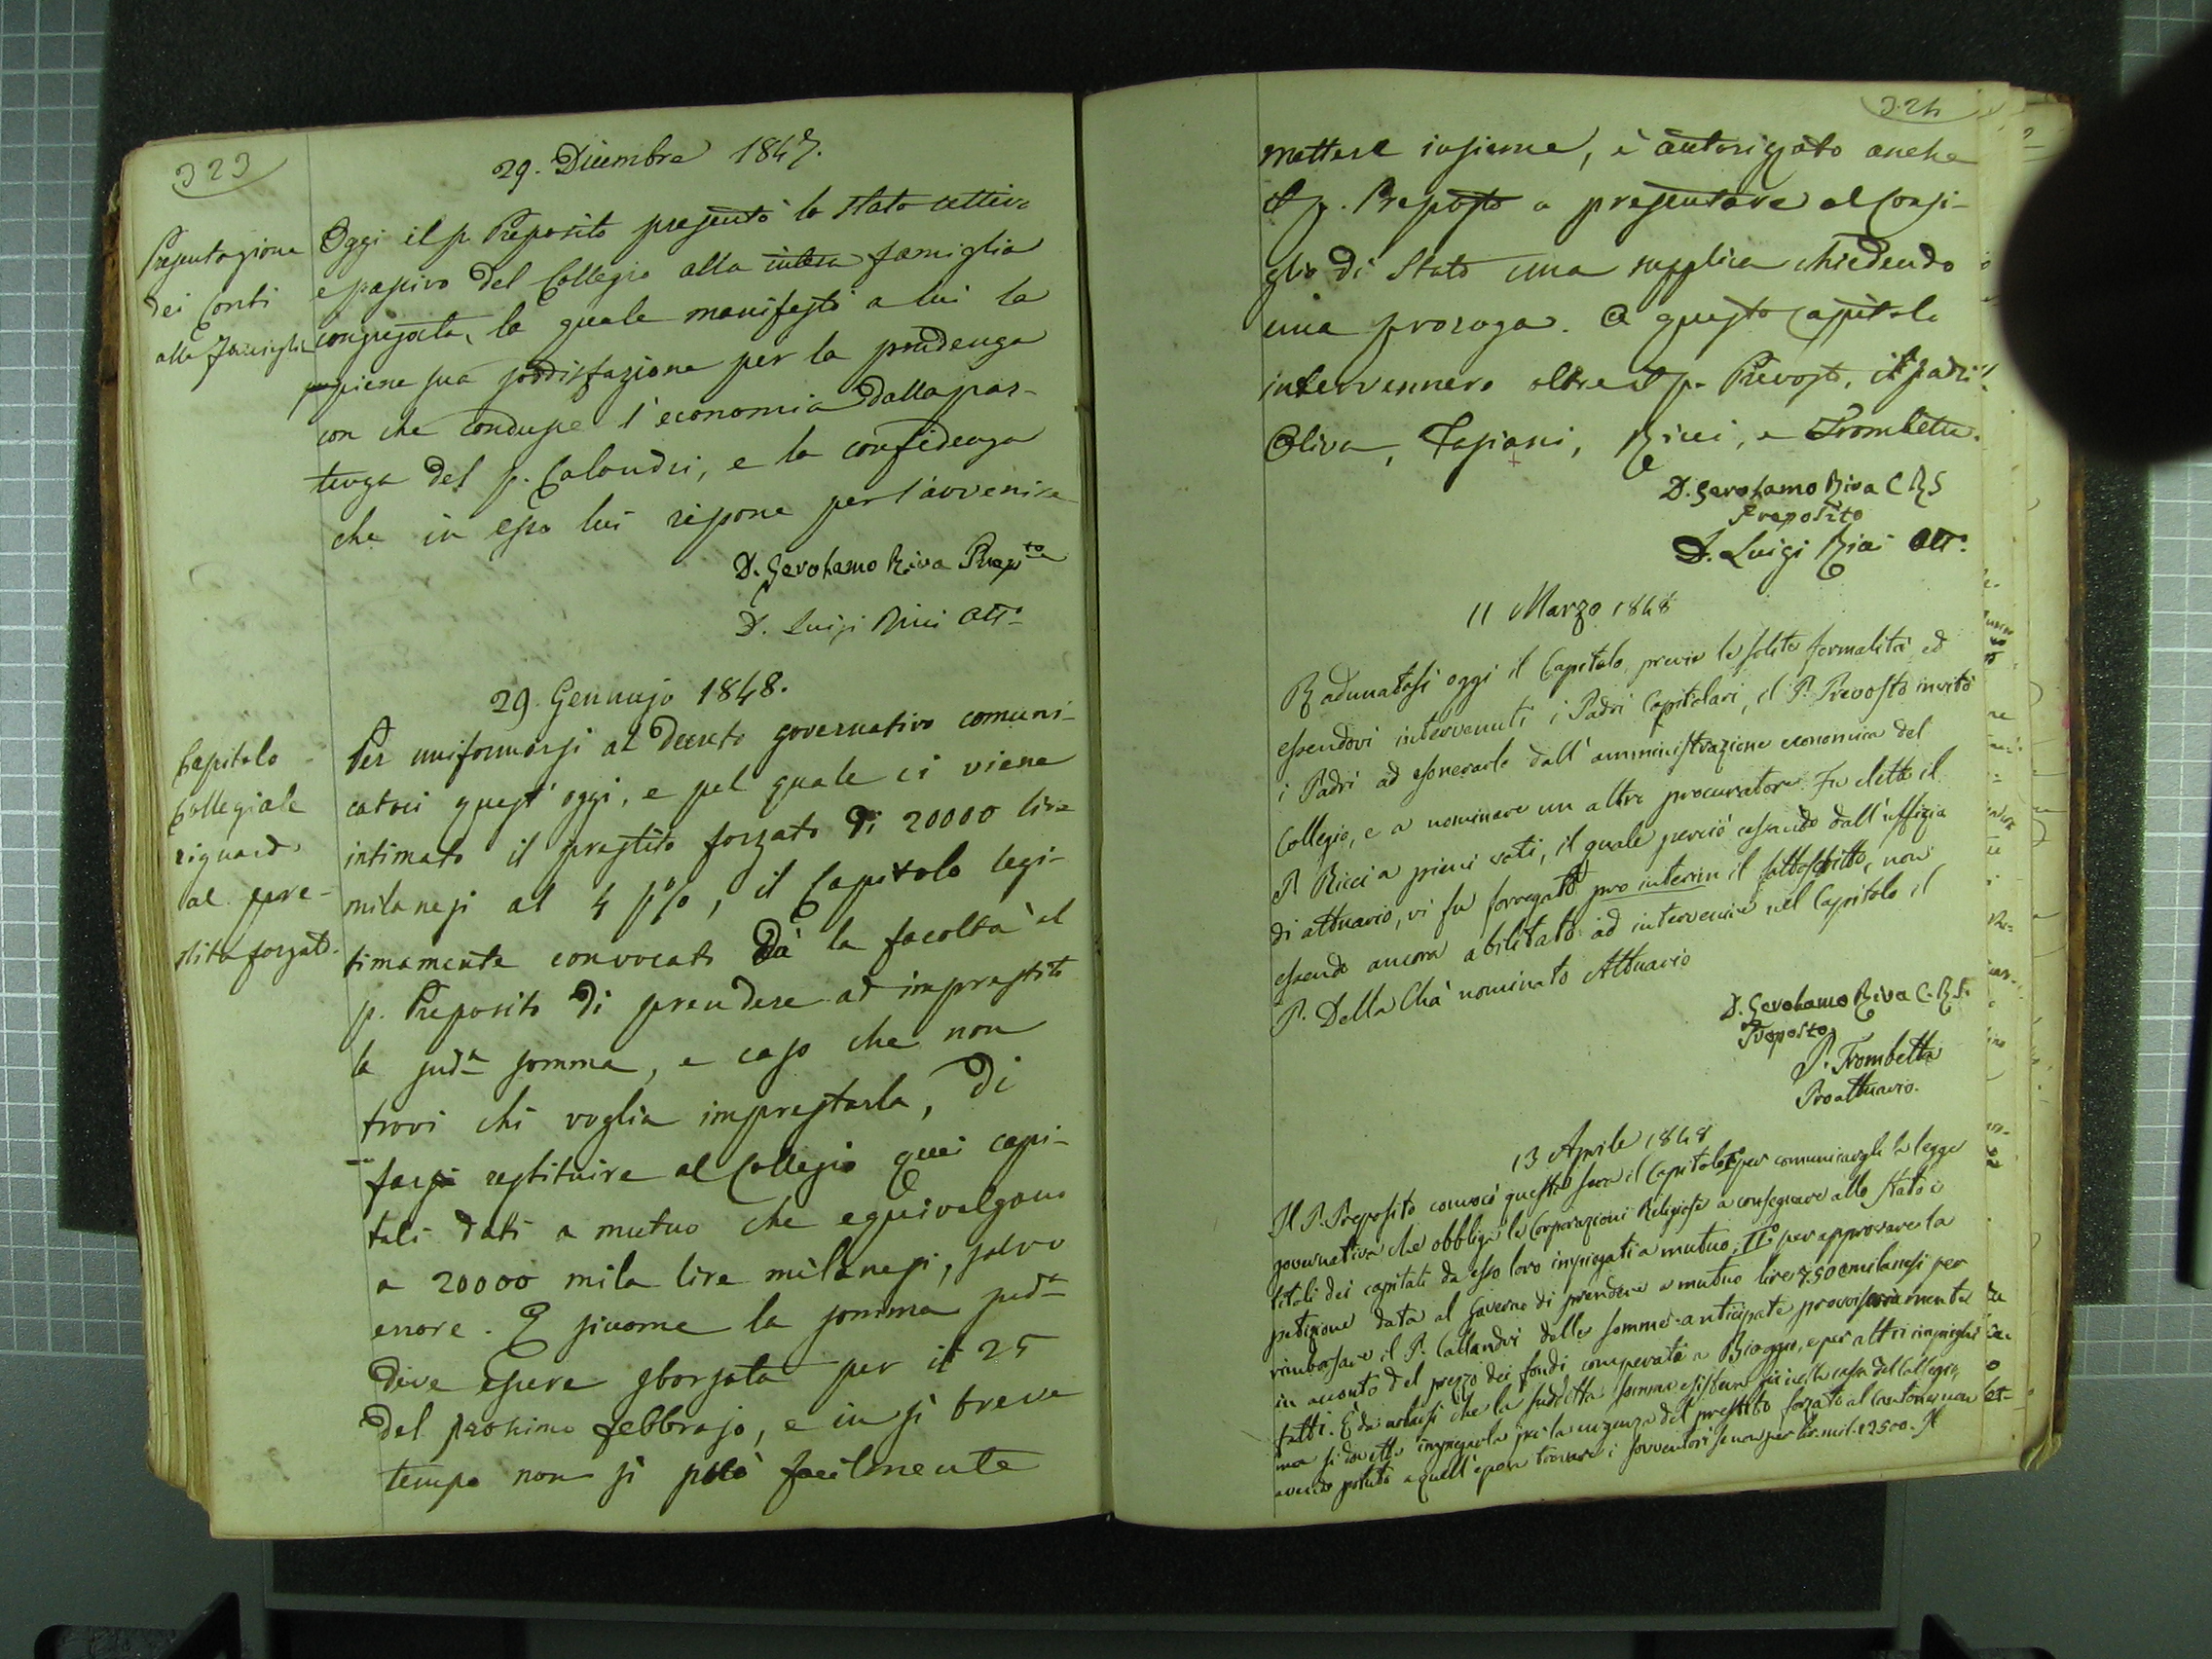 323
29. Dicembre 1847.
Presentazione
dei Conti
alla Famiglia
Oggi il p. Preposito presentò lo stato attivo
e passivo del Collegio alla intera famiglia
congregata, la quale manifestò a lui la
piena sua soddisfazione per la prudenza
con che condusse l'economia dalla par-
tenza del p. Calandri, e la confidenza
che in esso lui ripone per l'avvenire
D. Gerolamo Riva Prep.to
D. Luigi Ricci Att.o
29. Gennajo 1848.
Capitolo
Collegiale
riguardo
al pre-
stito forzato.
Per uniformarsi al decreto governativo comuni-
catoci quest'oggi, e pel quale ci viene
intimato il prestito forzato di 20000 lire
milanesi al 4 p%, il Capitolo legi-
timamente convocato dà la facoltà al
p. Preposito di prendere ad imprestito
la sud.a somma, e caso che non
trovi chi voglia imprestarla, di
farsi restituire al Collegio quei capi-
tali dati a mutuo che equivalgono
a 20000 mila lire milanesi, salvo
errore. E siccome la somma sud.a
deve essere sborsata per il 25
del prossimo febbrajo, e in sì breve
tempo non si può facilmente
324
mettere insieme, è autorizzato anche
il p. Preposto a presentare al Consi-
glio di Stato una supplica chiedendo
una proroga. A questo Capitolo
intervennero oltre il p. Prevosto, i padri
Oliva, Tassani, Ricci, e Trombetta.
D. Gerolamo Riva C R S
Preposito
D. Luigi Ricci Att.o
11 Marzo 1848
Radunatosi oggi il Capitolo previe le solite formalità ed
essendovi intervenuti i Padri Capitolari, il P. Prevosto invitò
i Padri ad esonerarlo dall'amministrazione economica del
Collegio, e a nominare un altro procuratore. Fu eletto il
P. Ricci a pieni voti, il quale perciò cessando dall'uffizio
di attuario, vi fu sorrogato pro interim il sottoscritto, non
essendo ancora abilitato ad intervenire nel Capitolo il
P. Della Chà nominato Attuario
D. Gerolamo Riva C. R. S.
Preposto
P. Trombetta
Proattuario.
13 Aprile 1848
Il P. Preposito convocò questa sera il Capitolo I° per comunicargli la legge
governativa che obbliga le Corporazioni Religiose a consegnare allo Stato i
titoli dei capitali da esso loro impiegati a mutuo; II° per approvare la
petizione data al Governo di prendere a mutuo lire 7500 milanesi per
rimborsare il P. Callandri delle somme anticipate provvisoriamente
in acconto del prezzo dei fondi comperati a Bioggio, e per altri impieghi
fatti. È da notarsi che la suddetta somma esisteva nella cassa del Collegio,
ma si dovette impiegarla per la urgenza del prestito forzato al Cantone, non
avendo potuto a quell'epoca trovare i sovventori se non per lir. mil. 12500. Il